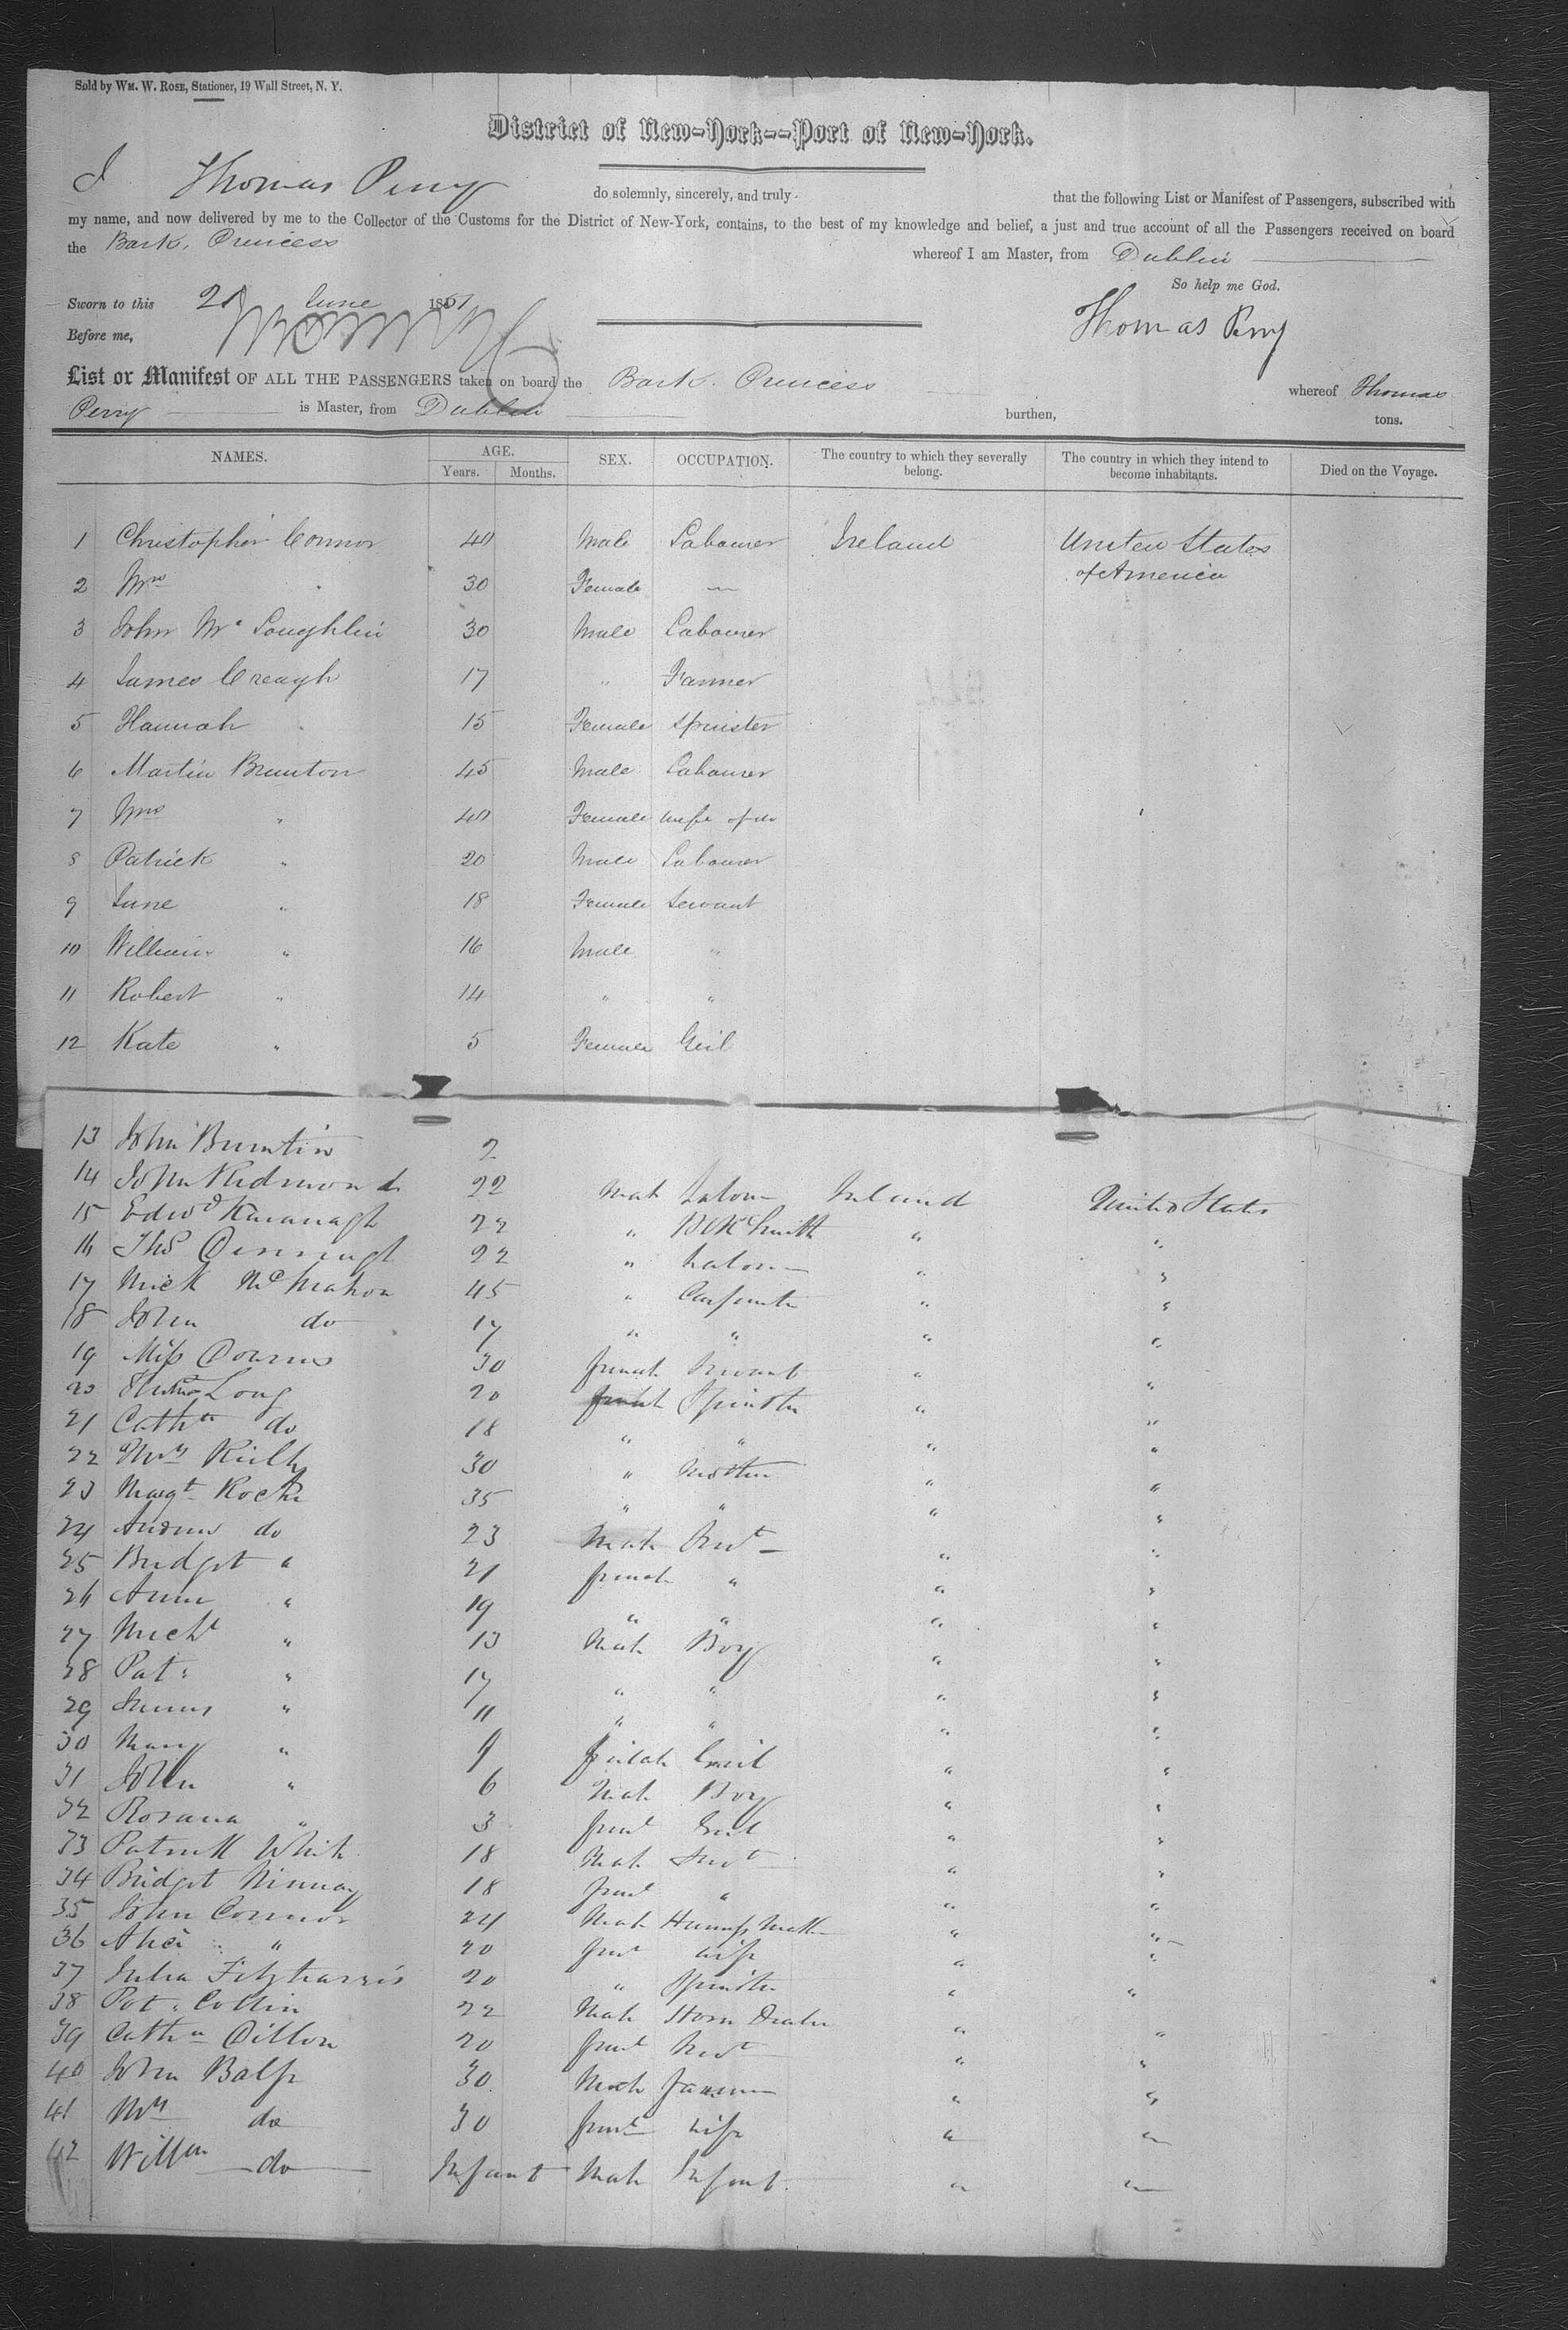 Sold by WM. W. ROSE, Stationer, 19 Wall Street, N. Y.
District of New-York--Port of New-York.
I Thomas Perry do solemnly, sincerely, and truly that the following List or Manifest of Passengers, subscribed with
my name, and now delivered by me to the Collector of the Customs for the District of New-York, contains, to the best of my knowledge and belief, a just and true account of all the Passengers received on board
the Bark, Princess whereof I am Master, from Dublin
So help me God.
Sworn to this 21 June 1851
Thomas Perry
Before me,
List or Manifest OF ALL THE PASSENGERS taken on board the Bark. Princess whereof Thomas
Perry is Master, from Dublin burthen, tons.
NAMES. AGE. SEX. OCCUPATION. The country to which they severally belong. The country in which they intend to become inhabitants. Died on the Voyage.
Years. Months.
1 Christopher Connor 40 Male Labourer Ireland United States
of America
2 Mrs " 30 Female —
3 John Mc Loughlin 30 Male Labourer
4 James Creagh 17 " Farmer
5 Hannah " 15 Female Spinster
6 Martin Brunton 45 Male Labourer
7 Mrs " 40 Female wife of do
8 Patrick " 20 Male Labourer
9 Jane " 18 Female Servant
10 William " 16 Male "
11 Robert " 14 " "
12 Kate " 5 Female Girl
13 John Bruntin 2
14 John Redmond 22 Male Labour Ireland United States
15 Edwd Kavanagh 22 " Blk Smith " "
16 Thos 22 " Labour " "
17 Mick McMahon 45 " Carpenter " "
18 John do 17 " " " "
19 Miss Downes 30 female Servant " "
20 Long 20 female Spinster " "
21 Cathn do 18 " " " "
22 Mrs 30 " Mother " "
23 Margt Roche 35 " " " "
24 Andrew do 23 Male Servt " "
25 Bridget " 21 female " " "
26 Anne " 19 " " " "
27 Michl " 13 Male Boy " "
28 Pat: " 17 " " " "
29 James " 11 " " " "
30 Mary " 9 female Girl " "
31 John " 6 Male Boy " "
32 Rosana " 3 feml Girl " "
33 Patrick White 18 Male Servt " "
34 Bridget 18 feml " " "
35 John Connor 24 Male " "
36 Alice " 20 feml wife " "
37 Julia Fitzharris 20 " Spinster " "
38 Pat: Collin 22 Male Store Dealer " "
39 Cathn Dillon 20 feml Servt " "
40 John Balfe 30 Male Farmer " "
41 Mrs do 30 feml wife " "
42 Willm do Infant Male Infant " "